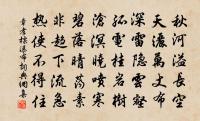 秋河溢長空
天灑萬丈布
深雷隱雲壑
孤電挂岩樹
滄溟曉噴寒
碧落晴蕩素
非趨下流急
熱使不得住
章孝標瀑布詞典網集